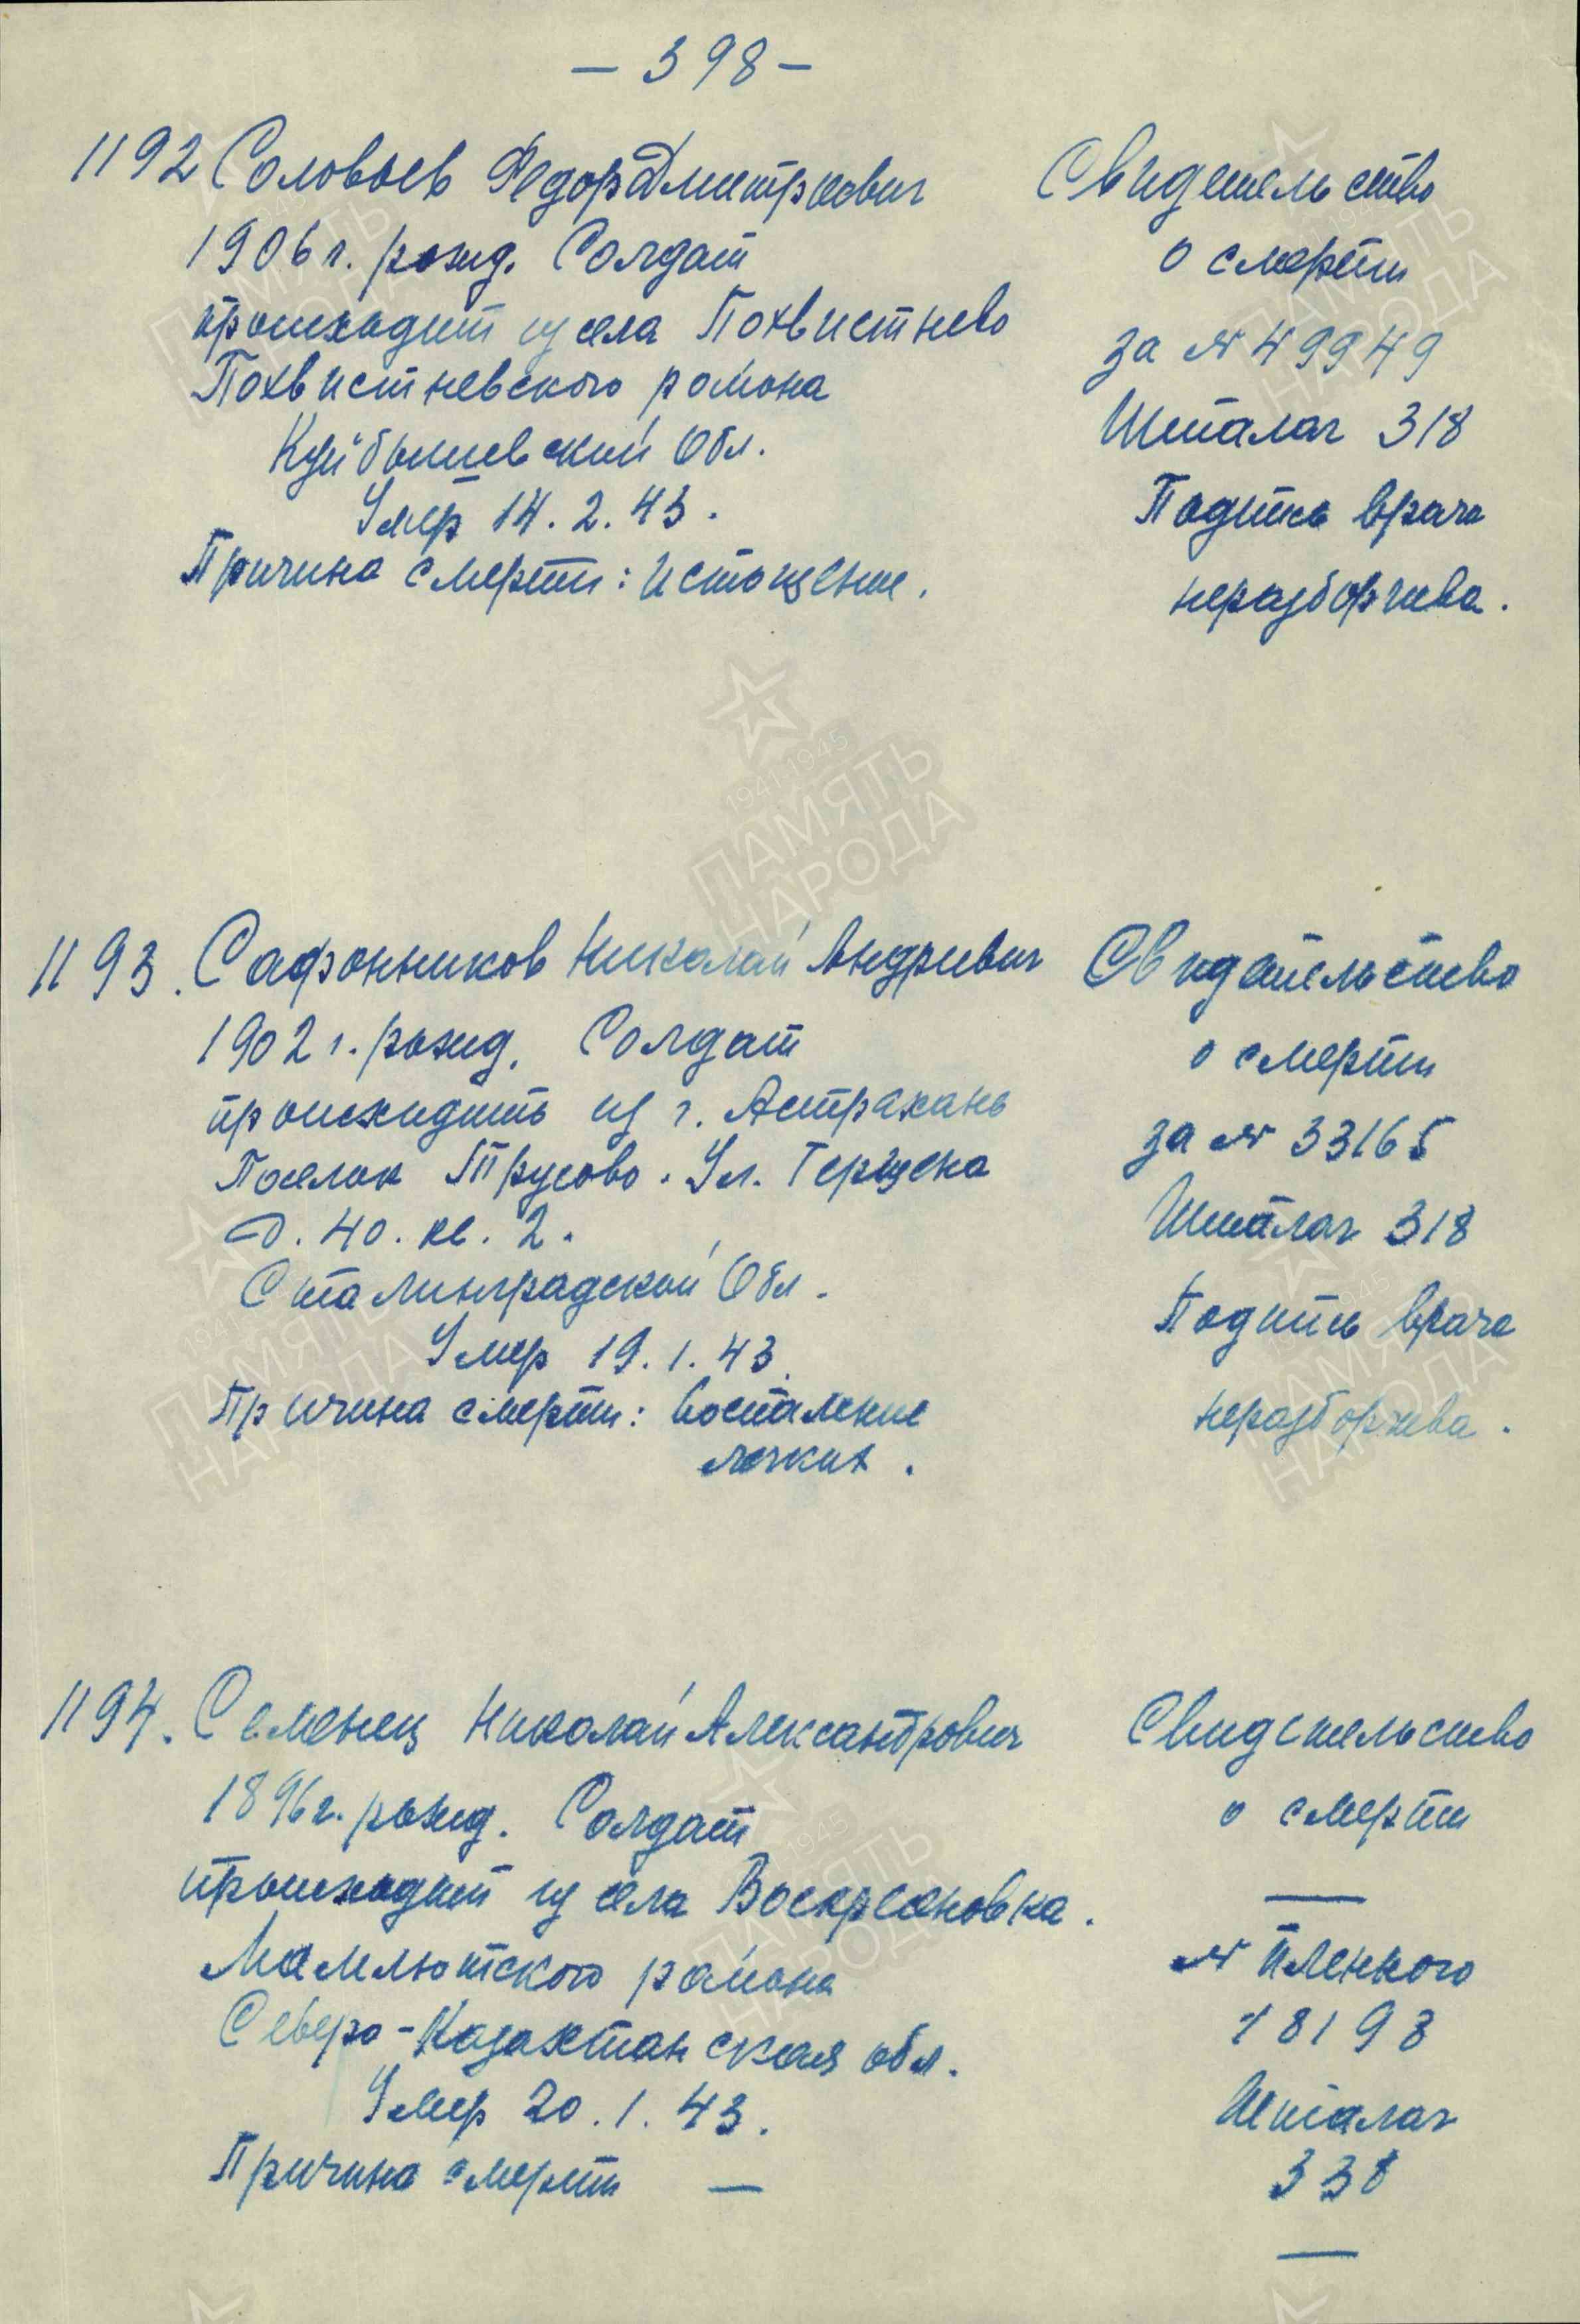 — 398 —
1192 Соловьев Федор Дмитриевич
1906 г. рожд. Солдат
происходит из села Похвистнево
Похвистневского района
Куйбышевский Обл.
Умер 14. 2. 43.
Причина смерти: истощение.
Свидетельство
о смерти
за № 49949
Шталаг 318
Подпись врача
неразборчива.
1193. Сафонников Николай Андриевич
1902 г. рожд. Солдат
происходить из г. Астрахань
Поселок Трусово. Ул. Герцена
д. 40. кв. 2.
Сталинградской Обл.
Умер 19. 1. 43.
Причина смерти: Воспаление
легких.
Свидетельство
о смерти
за № 33165
Шталаг 318
Подпись врача
неразборчива.
1194. Семенец Николай Александрович
1896 г. рожд. Солдат
происходит из села Воскресеновка.
Мамлютского района
Северо-Казахтанская обл.
Умер 20. 1. 43.
Причина смерти —
Свидетельство
о смерти
—
№ пленного
18198
Шталаг
338
—
1941-1945
ПАМЯТЬ
НАРОДА